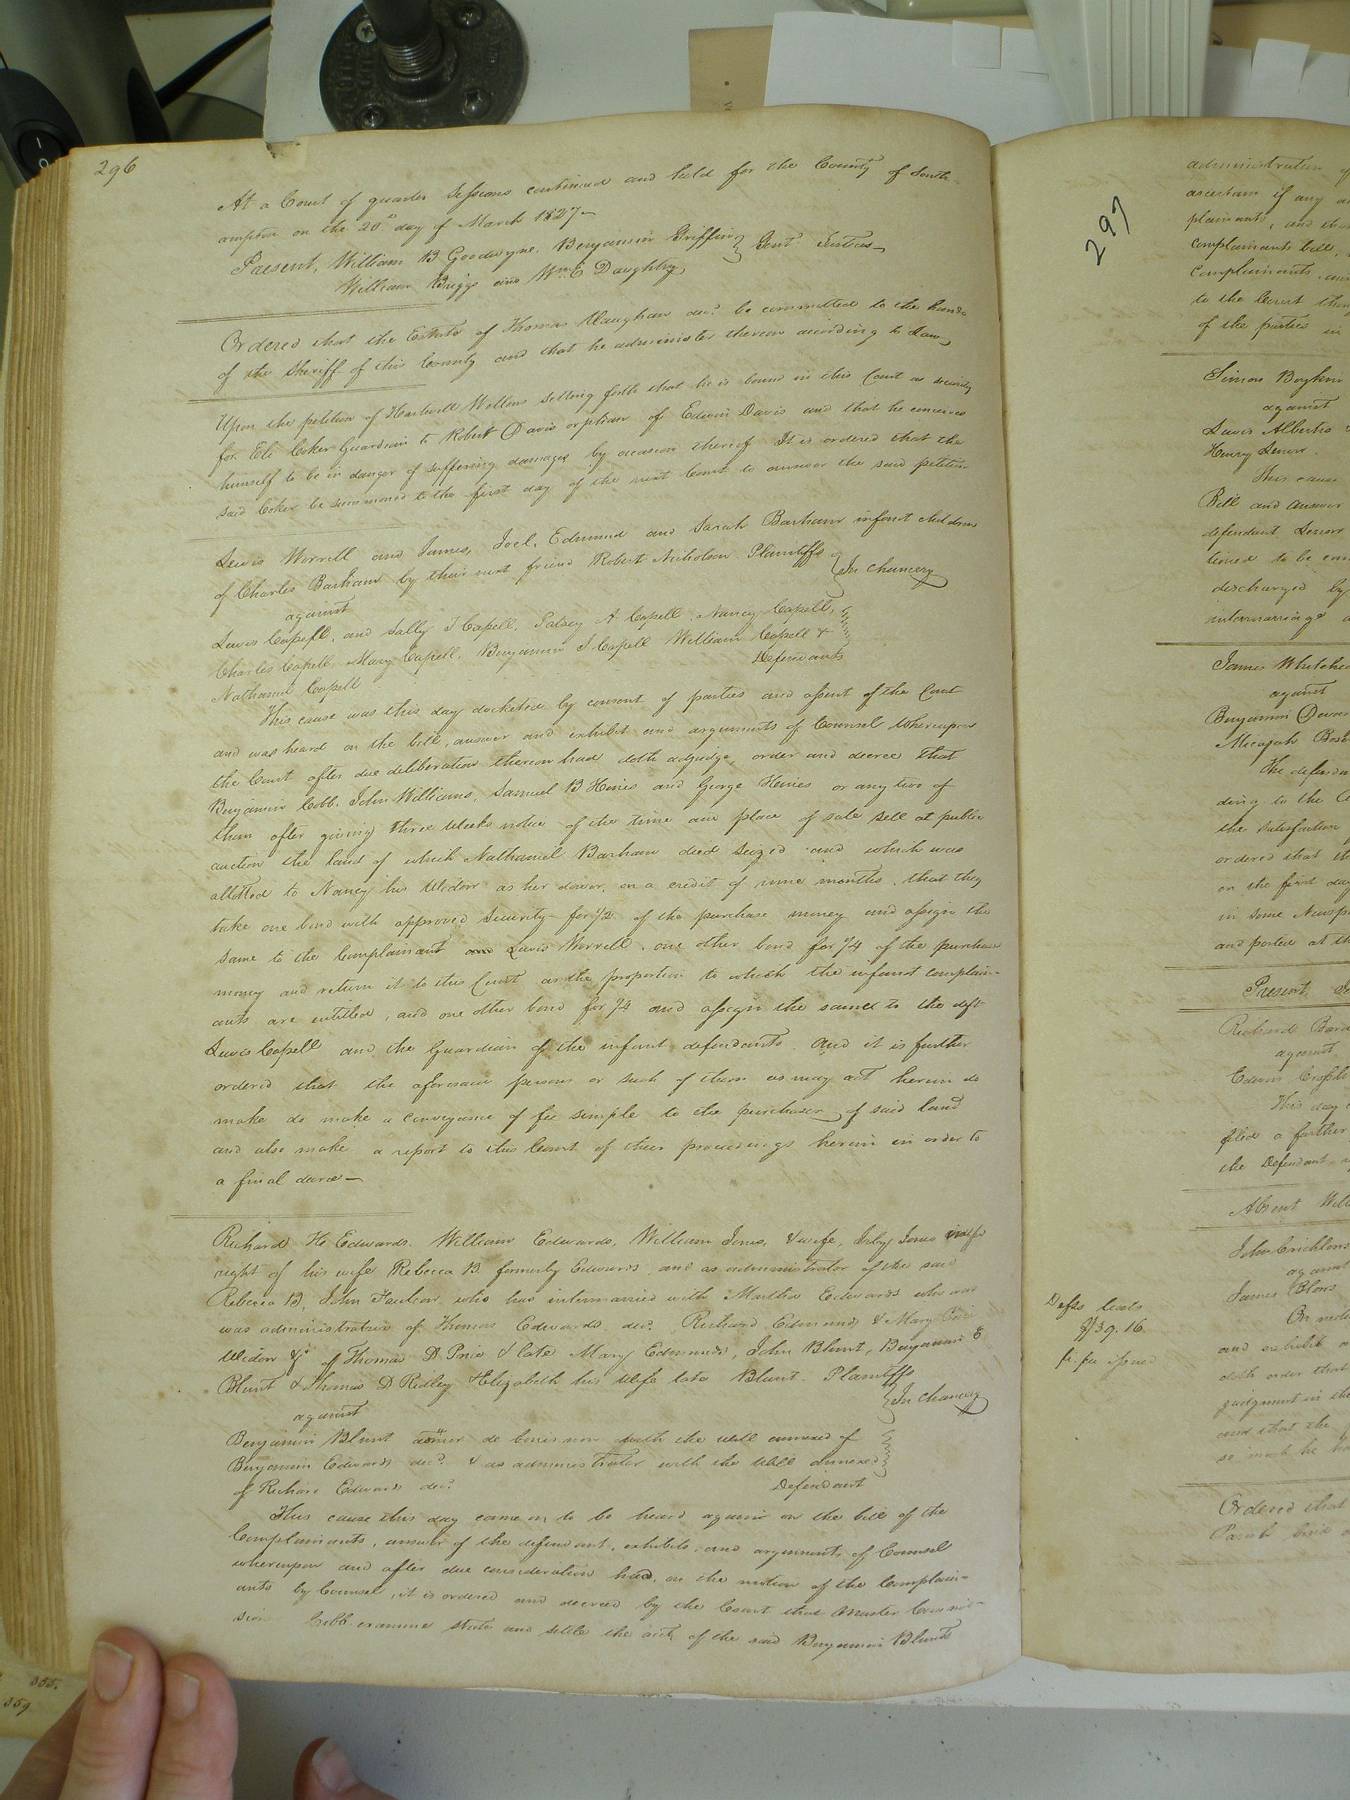 296
At a Court of quarter Sessions continued and held for the County of South-
ampton on the 20th day of March 1827–
Present, William B Goodwyn, Benjamin Griffin } Gent Justices
William Briggs and Wm E Daughtry
Ordered that the Estate of Thomas Vaughan decd be committed to the hands
of the Sheriff of this County and that he administer thereon according to Law
Upon the petition of Hartwell Wellons setting forth that he is bound in this Court as security
for Eli Coker Guardian to Robert Davis orphan of Edwin Davis and that he conceives
himself to be in danger of suffering damages by occasion thereof It is ordered that the
said Coker be summoned to the first day of the next Court to answer the said petition
Lewis Worrell and James, Joel, Edmund and Sarah Barham infant children
of Charles Barham by their next friend Robert Nicholson Plaintiffs } In Chancery
against
Lewis Capell, and Sally J Capell, Patsey A Capell, Nancy Capell,
Charles Capell, Mary Capell, Benjamin J Capell William Capell &
Nathaniel Capell Defendants
This cause was this day docketed by consent of parties and assent of the Court
and was heard on the bill, answer and exhibit and arguments of Counsel Whereupon
the Court after due deliberation thereon had doth adjudge, order and decree that
Benjamin Cobb, John Williams, Samuel B Hines and George Hines or any two of
them after giving three Weeks notice of the time and place of sale sell at public
auction the land of which Nathaniel Barham died seized and which was
allotted to Nancy his Widow as her dower, on a credit of nine months, that they
take one bond with approved Security for 1/2 of the purchase money and assign the
same to the Complainant and Lewis Worrell, one other bond for 1/4 of the purchase
money and return it to this Court as the proportion to which the infant complain-
ants are entitled, and one other bond for 1/4 and assign the same to the deft
Lewis Capell and the Guardian of the infant defendants. And it is further
ordered that the aforesaid persons or such of them as may act herein do
make do make a conveyance of fee simple to the purchaser of said land
and also make a report to this Court of their proceedings herein in order to
a final decree–
Richard H Edwards, William Edwards, William Jones, & wife, Irby Jones
right of his wife Rebecca B. formerly Edwards and as administrator of the said
Rebecca B, John Faulcon who has intermarried with Martha Edwards who
was administratrix of Thomas Edwards decd Richard Edmunds & Mary
Widow &c of Thomas D. Price & late Mary Edmunds, John Blunt, Benjamin E
Blunt & Thomas D Ridley & Elizabeth his wife late Blunt. Plaintiffs
against } In Chancery
Benjamin Blunt admr de bonis non with the will annexed of
Benjamin Edwards decd & as administrator with the Will annexed
of Richard Edwards decd Defendant
This cause this day came on to be heard again on the bill of the
Complainants, answer of the defendant, exhibits, and arguments of Counsel
whereupon and after due consideration had, on the motion of the Complain-
ants by Counsel, it is ordered and decreed by the Court that Master Commis-
sion Cobb examine state and settle the acct of the said Benjamin Blunt
297
administration of
ascertain if any
plainants, and
complainants bill,
Complainants
to the Court
of the parties in
Simon Boykin
against
Lewis Albertie
Henry
This cause
Bill and answer
defendant
tioned to be
discharged by
intermarriage
James Whitehe
against
Benjamin
Micajah
The defenda
ding to the
the satisfaction
ordered that
on the first day
in some Newsp
and posted at the
Present,
Richard
against
Edwin
This day
filed a further
the Defendant
Absent Will
John Crichlow
against
James
On motion
and exhibits
doth order that
judgment in the
and that the
so much he
Ordered that
Parish
fi. fa issued
355.
359